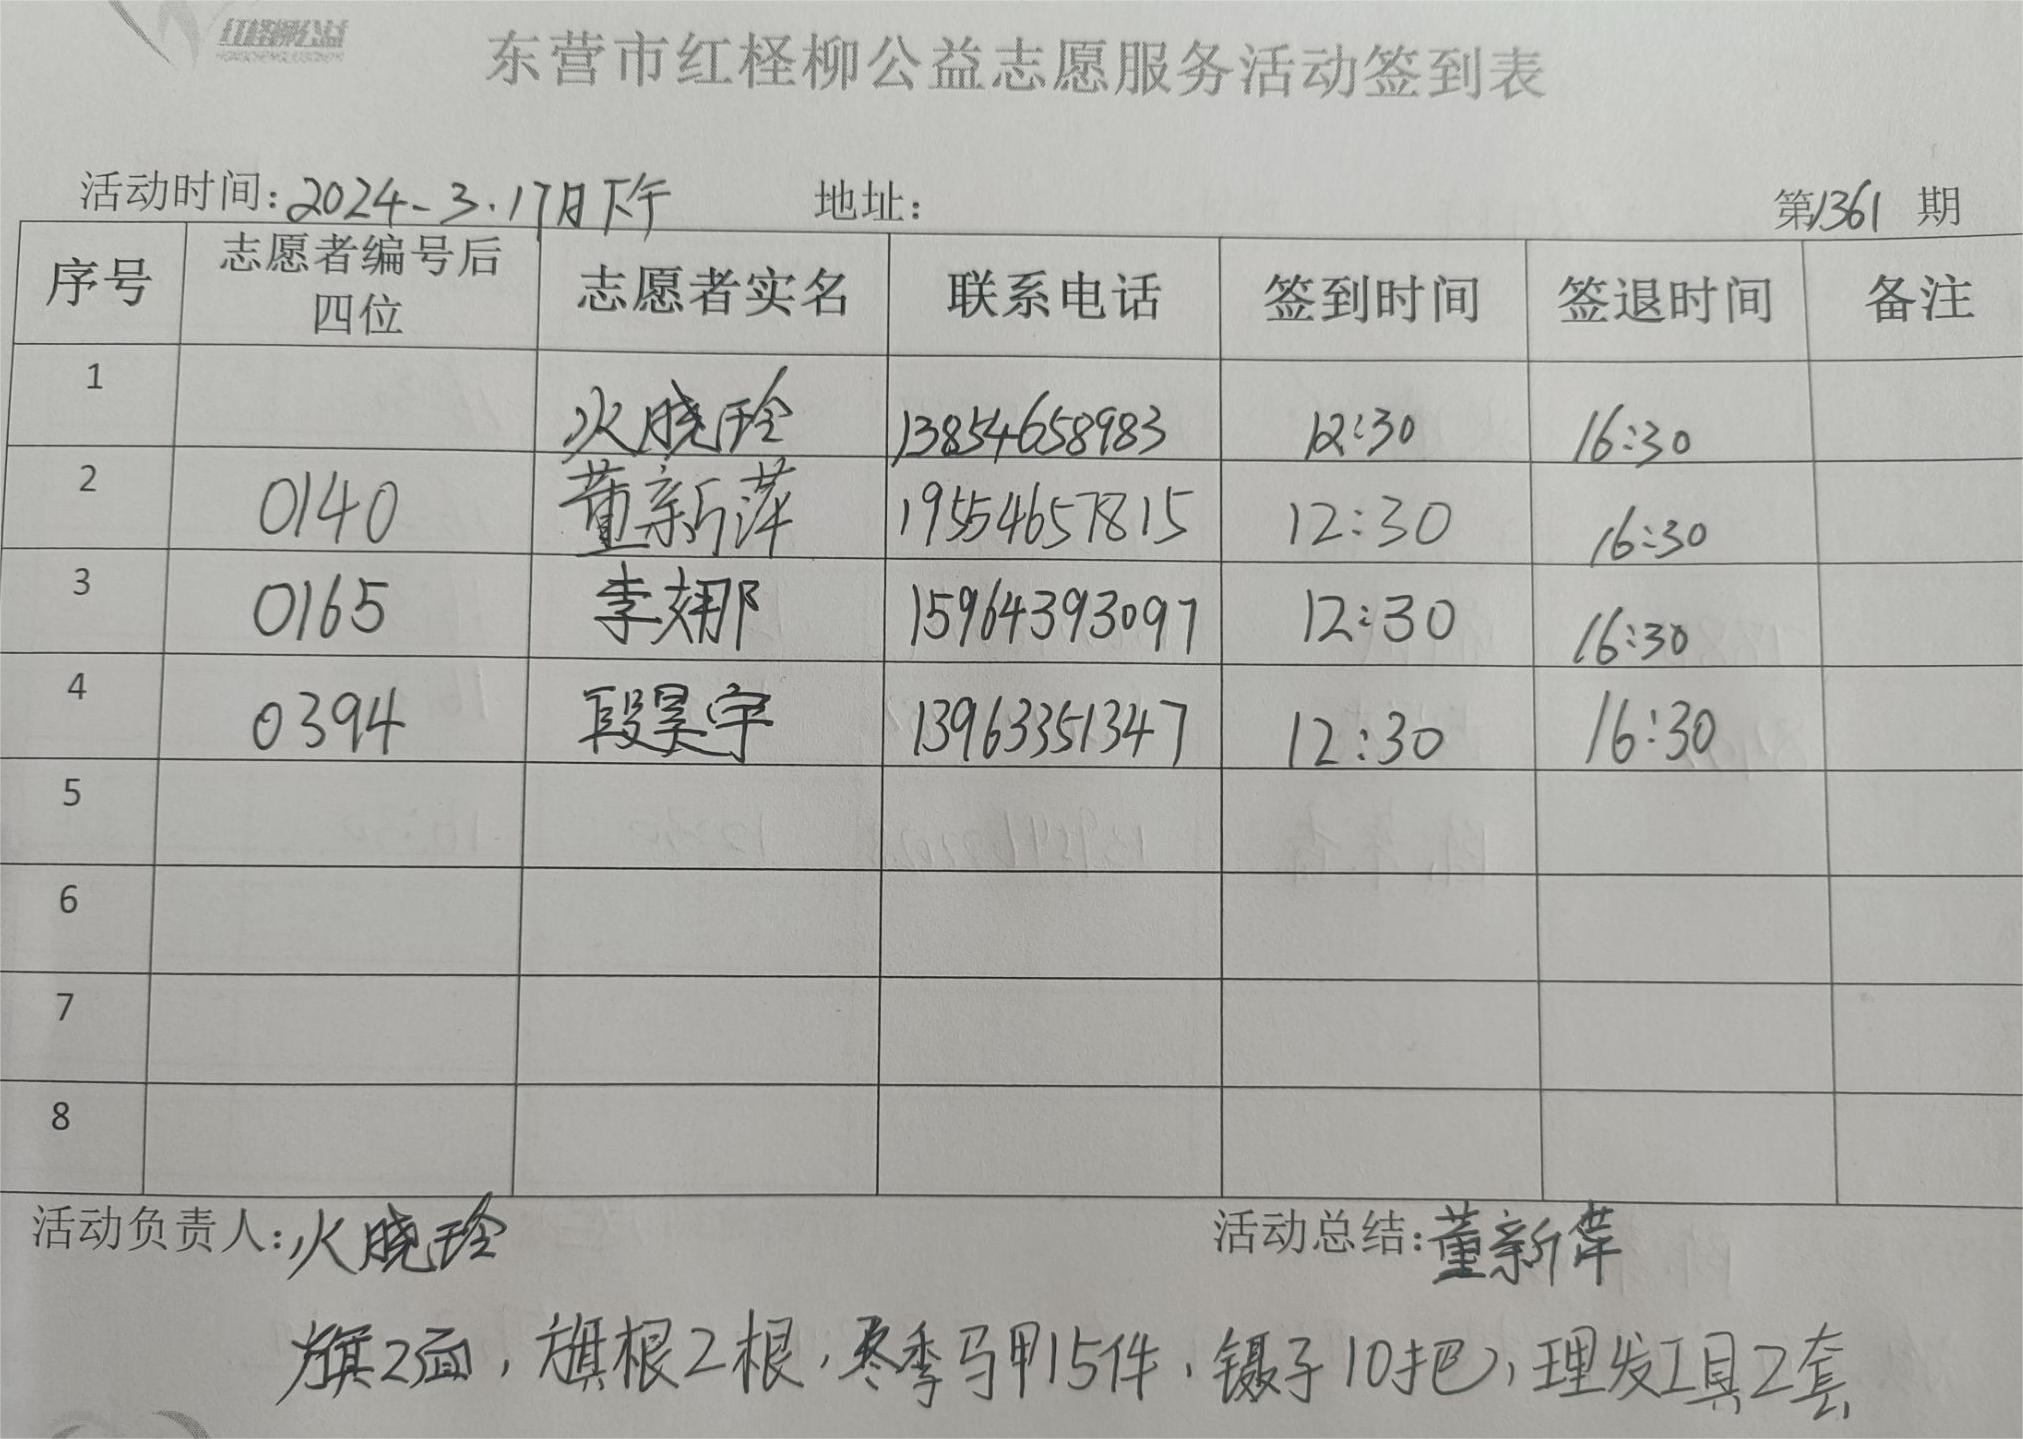 红柽柳公益
东营市红柽柳公益志愿服务活动签到表
活动时间:2024-3.17日下午 地址: 第1361期
序号 志愿者编号后四位 志愿者实名 联系电话 签到时间 签退时间 备注
1 火晓玲 13854658983 12:30 16:30
2 0140 董新萍 19554657815 12:30 16:30
3 0165 李娜 15964393097 12:30 16:30
4 0394 段昊宇 13963351347 12:30 16:30
5
6
7
8
活动负责人:火晓玲 活动总结:董新萍
旗2面,旗根2根,冬季马甲15件,镊子10把,理发工具2套